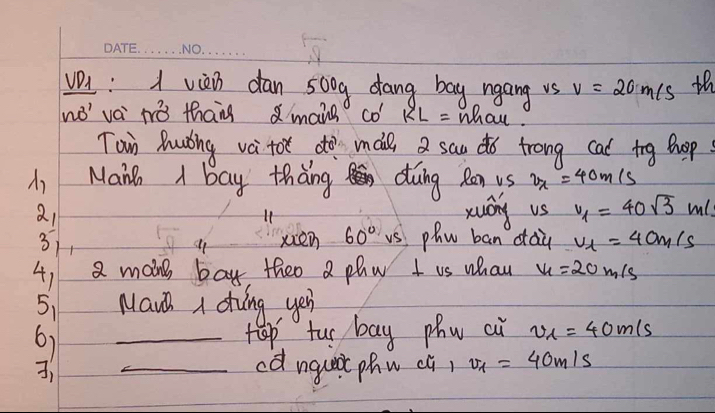 DATE.......NO.......
VD1 : 1 viên đạn 500g đang bay ngang vs v = 20m/s th
nổ và trở thành 2 mảnh có KL = nhau.
Tìm hướng và tốc độ mảnh 2 sau đó trong các trg hợp s
1, Mảnh 1 bay thẳng đứng lên vs v₁ = 40m/s
2, " xuống vs v₁ = 40√3 m/s
3, " xiên 60° vs phw ban đầu v₁ = 40m/s
4, 2 mảnh bay theo 2 phw ⊥ vs nhau v₁ = 20m/s
5, Mảnh 1 đứng yên
6, ——— tiếp tục bay phw cũ v₁ = 40m/s
7, ——— cđ ngược phw cũ, v₁ = 40m/s